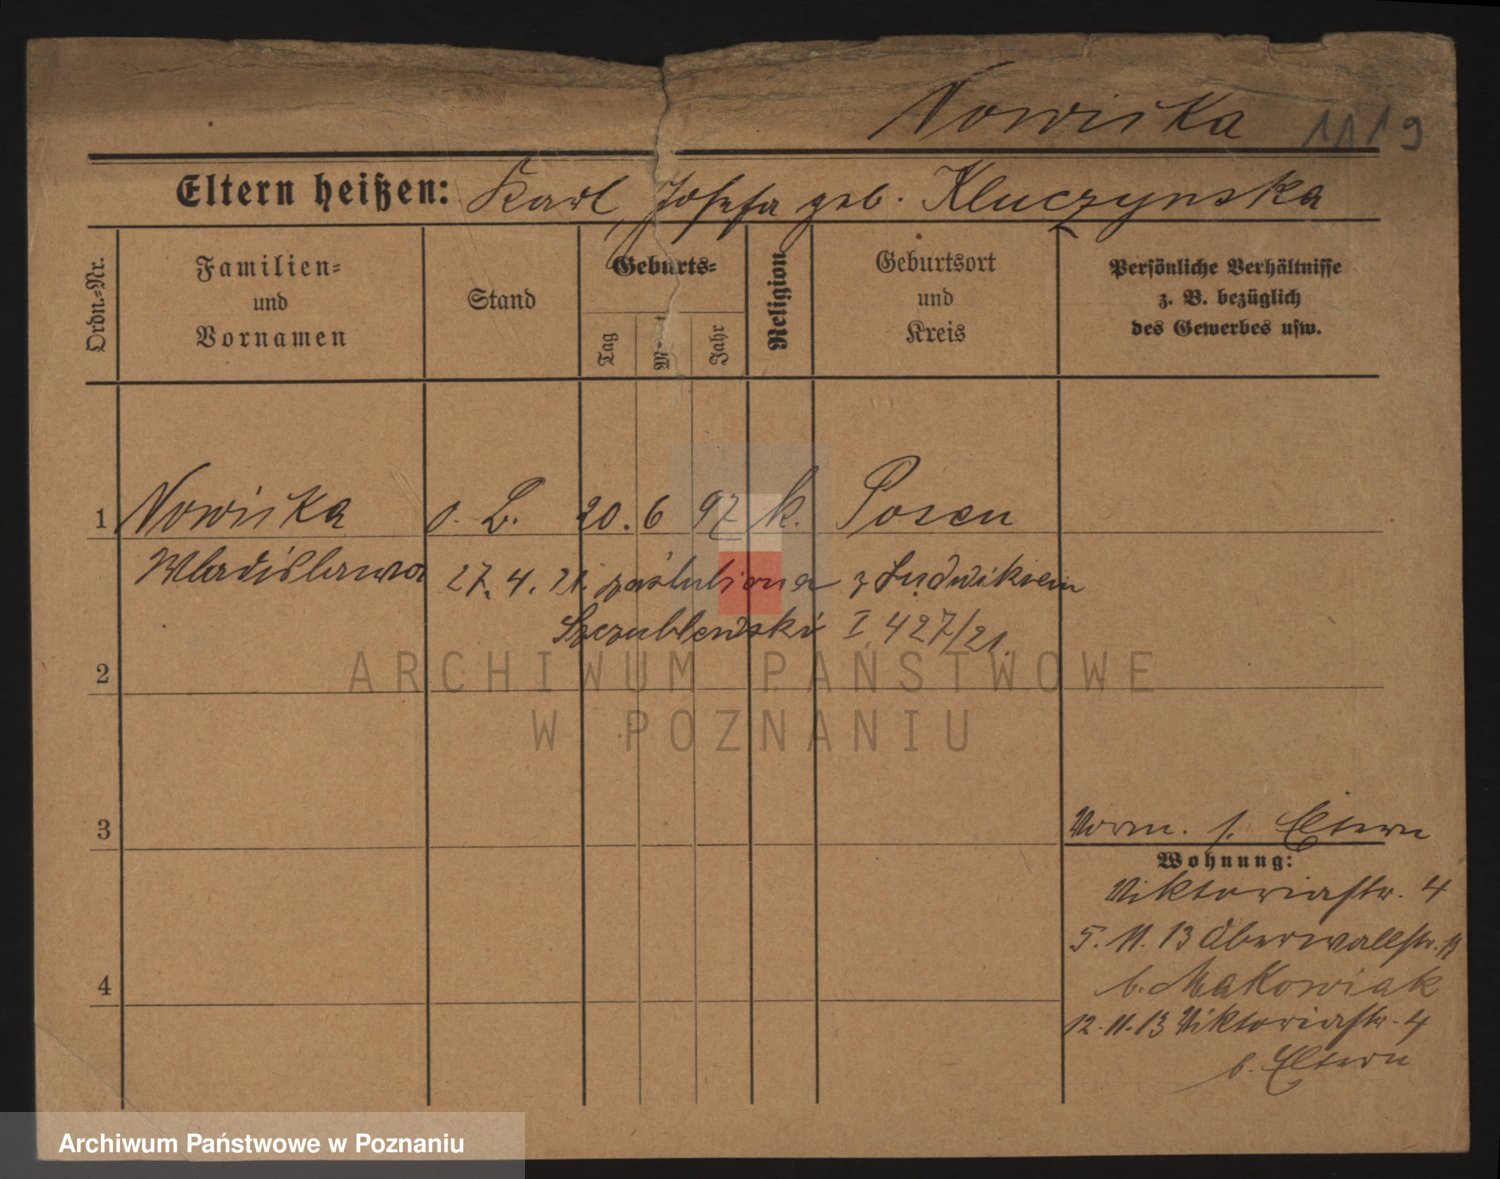 Nowicka 1119
Eltern heißen: Karl, Josefa geb. Kluczynska
Ordn.-Nr.
Familien- und Vornamen
Stand
Geburts-
Tag
Jahr
Religion
Geburtsort und Kreis
Persönliche Verhältnisse
z. B. bezüglich
des Gewerbes usw.
1 Nowicka o. B. 20. 6 97 k. Posen
Wladislawa 27. 4. 21. zaślubiona z Ludwikiem
Szczublewski I 427/21.
ARCHIWUM PAŃSTWOWE
W POZNANIU
2
3
Vorm. s. Eltern
Wohnung:
Viktoriastr. 4
5. 11. 13 Oberwallstr. 11
4
b. Makowiak
12. 11. 13 Viktoriastr. 4
b. Eltern
Archiwum Państwowe w Poznaniu